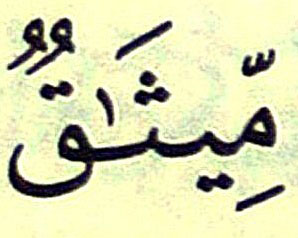 مِّيثَـٰقٌ